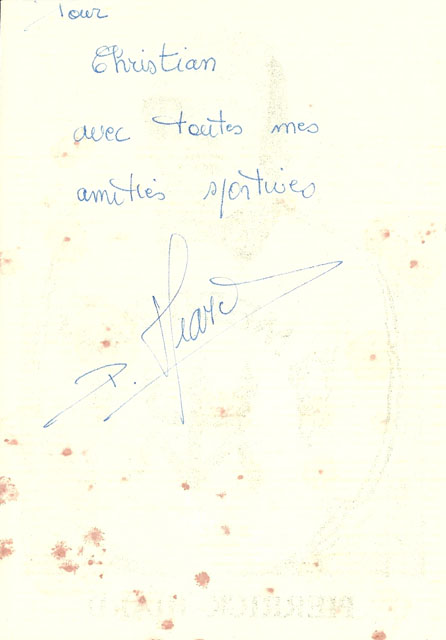 Pour
Christian
avec toutes mes
amitiés sportives
P.